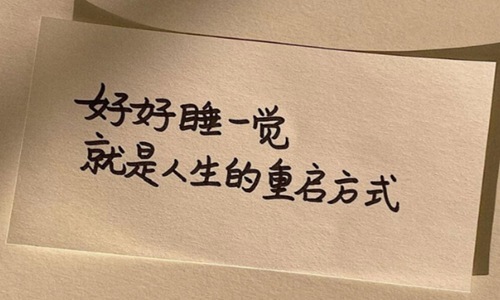 好好睡一觉
就是人生的重启方式